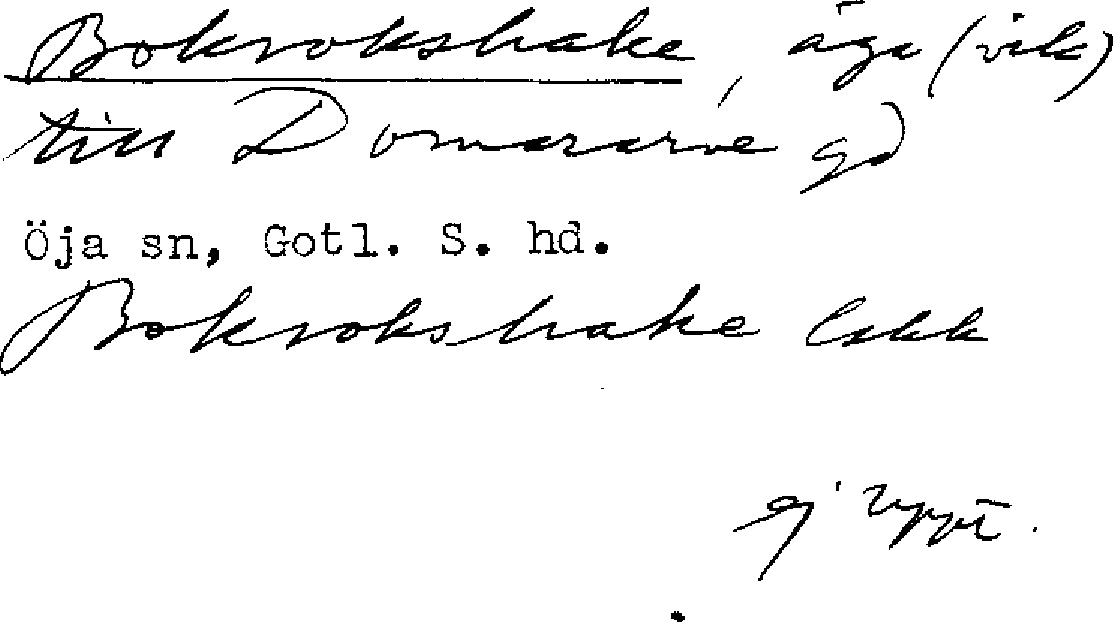 Bokrokshake, äga (vik)
till Domararve gd
Öja sn, Gotl. S. hd.
Bokrokshake Ekk
ej uppt.